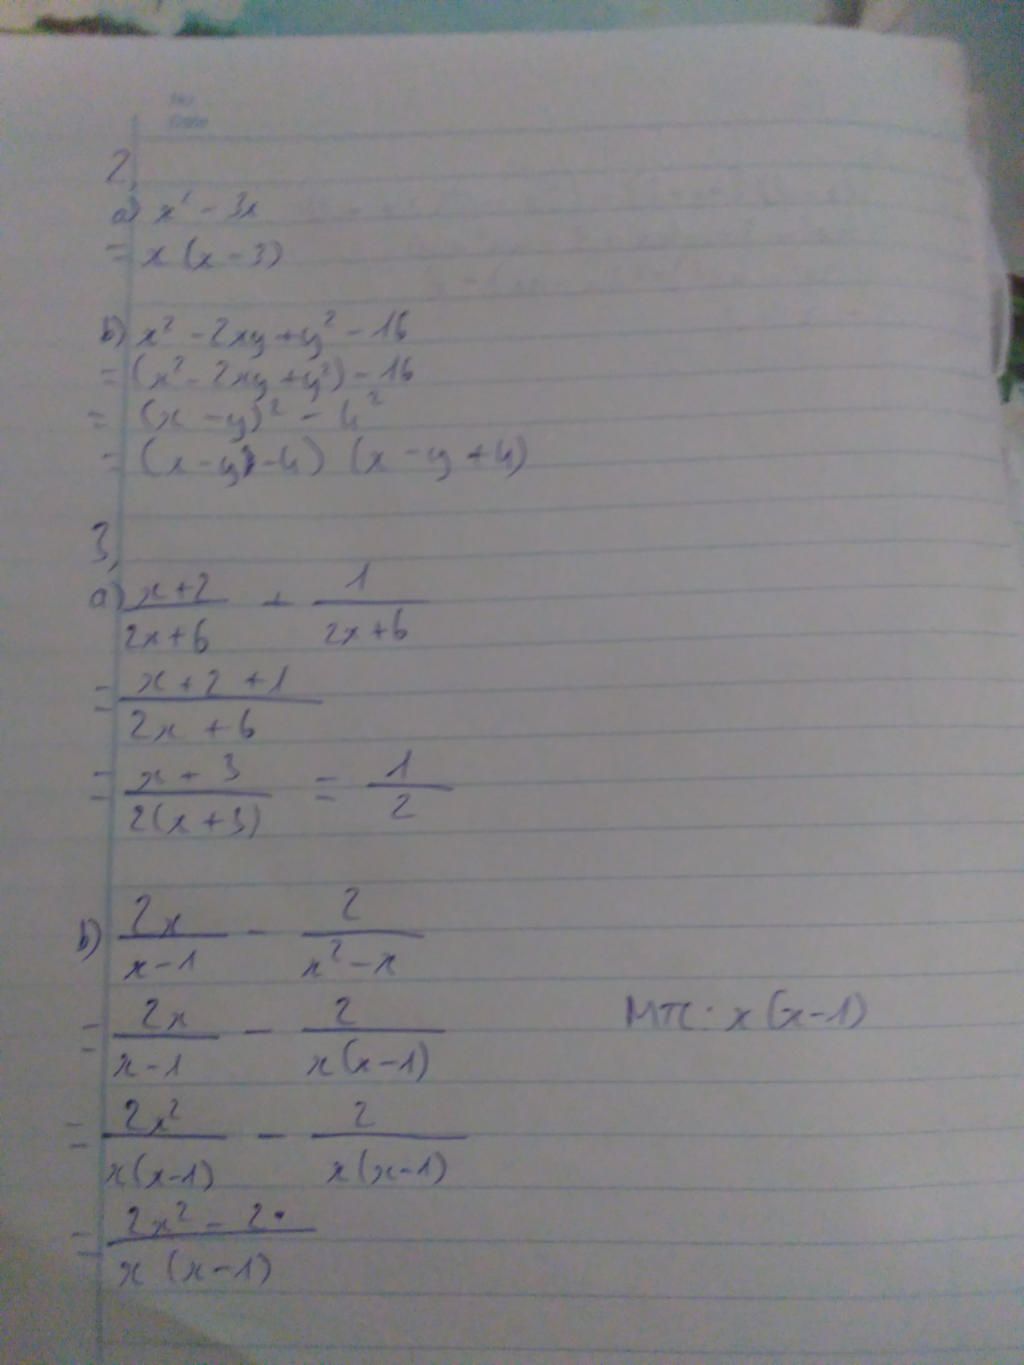 No.
Date
2,
a) x² - 3x
= x (x - 3)
b) x² - 2xy + y² - 16
= (x² - 2xy + y²) - 16
= (x - y)² - 4²
= (x - y - 4) (x - y + 4)
3,
a) \frac{x+2}{2x+6} + \frac{1}{2x+6}
= \frac{x+2+1}{2x+6}
= \frac{x+3}{2(x+3)} = \frac{1}{2}
b) \frac{2x}{x-1} - \frac{2}{x²-x}
= \frac{2x}{x-1} - \frac{2}{x(x-1)} MTC: x(x-1)
= \frac{2x²}{x(x-1)} - \frac{2}{x(x-1)}
= \frac{2x²-2}{x(x-1)}